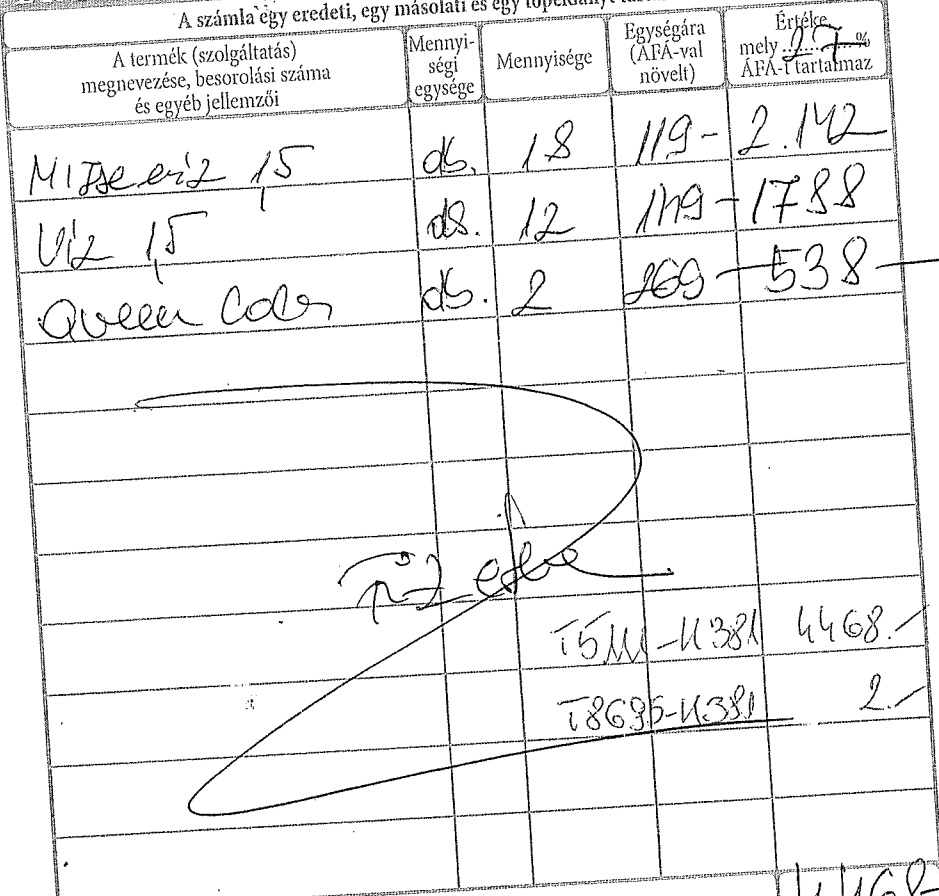 A számla egy eredeti, egy másolati és egy tőpéldányt
A termék (szolgáltatás) megnevezése, besorolási száma és egyéb jellemzői
Mennyiségi egysége
Mennyisége
Egységára (ÁFÁ-val növelt)
Értéke mely 27 % ÁFÁ-t tartalmaz
víz 1,5 db. 18 119- 2.142
Víz 1,5 db. 12 149- 1788
Queen Cola db. 2 269- 538-
T5111-K381 4468.-
T8695-K381 2.-
4468-